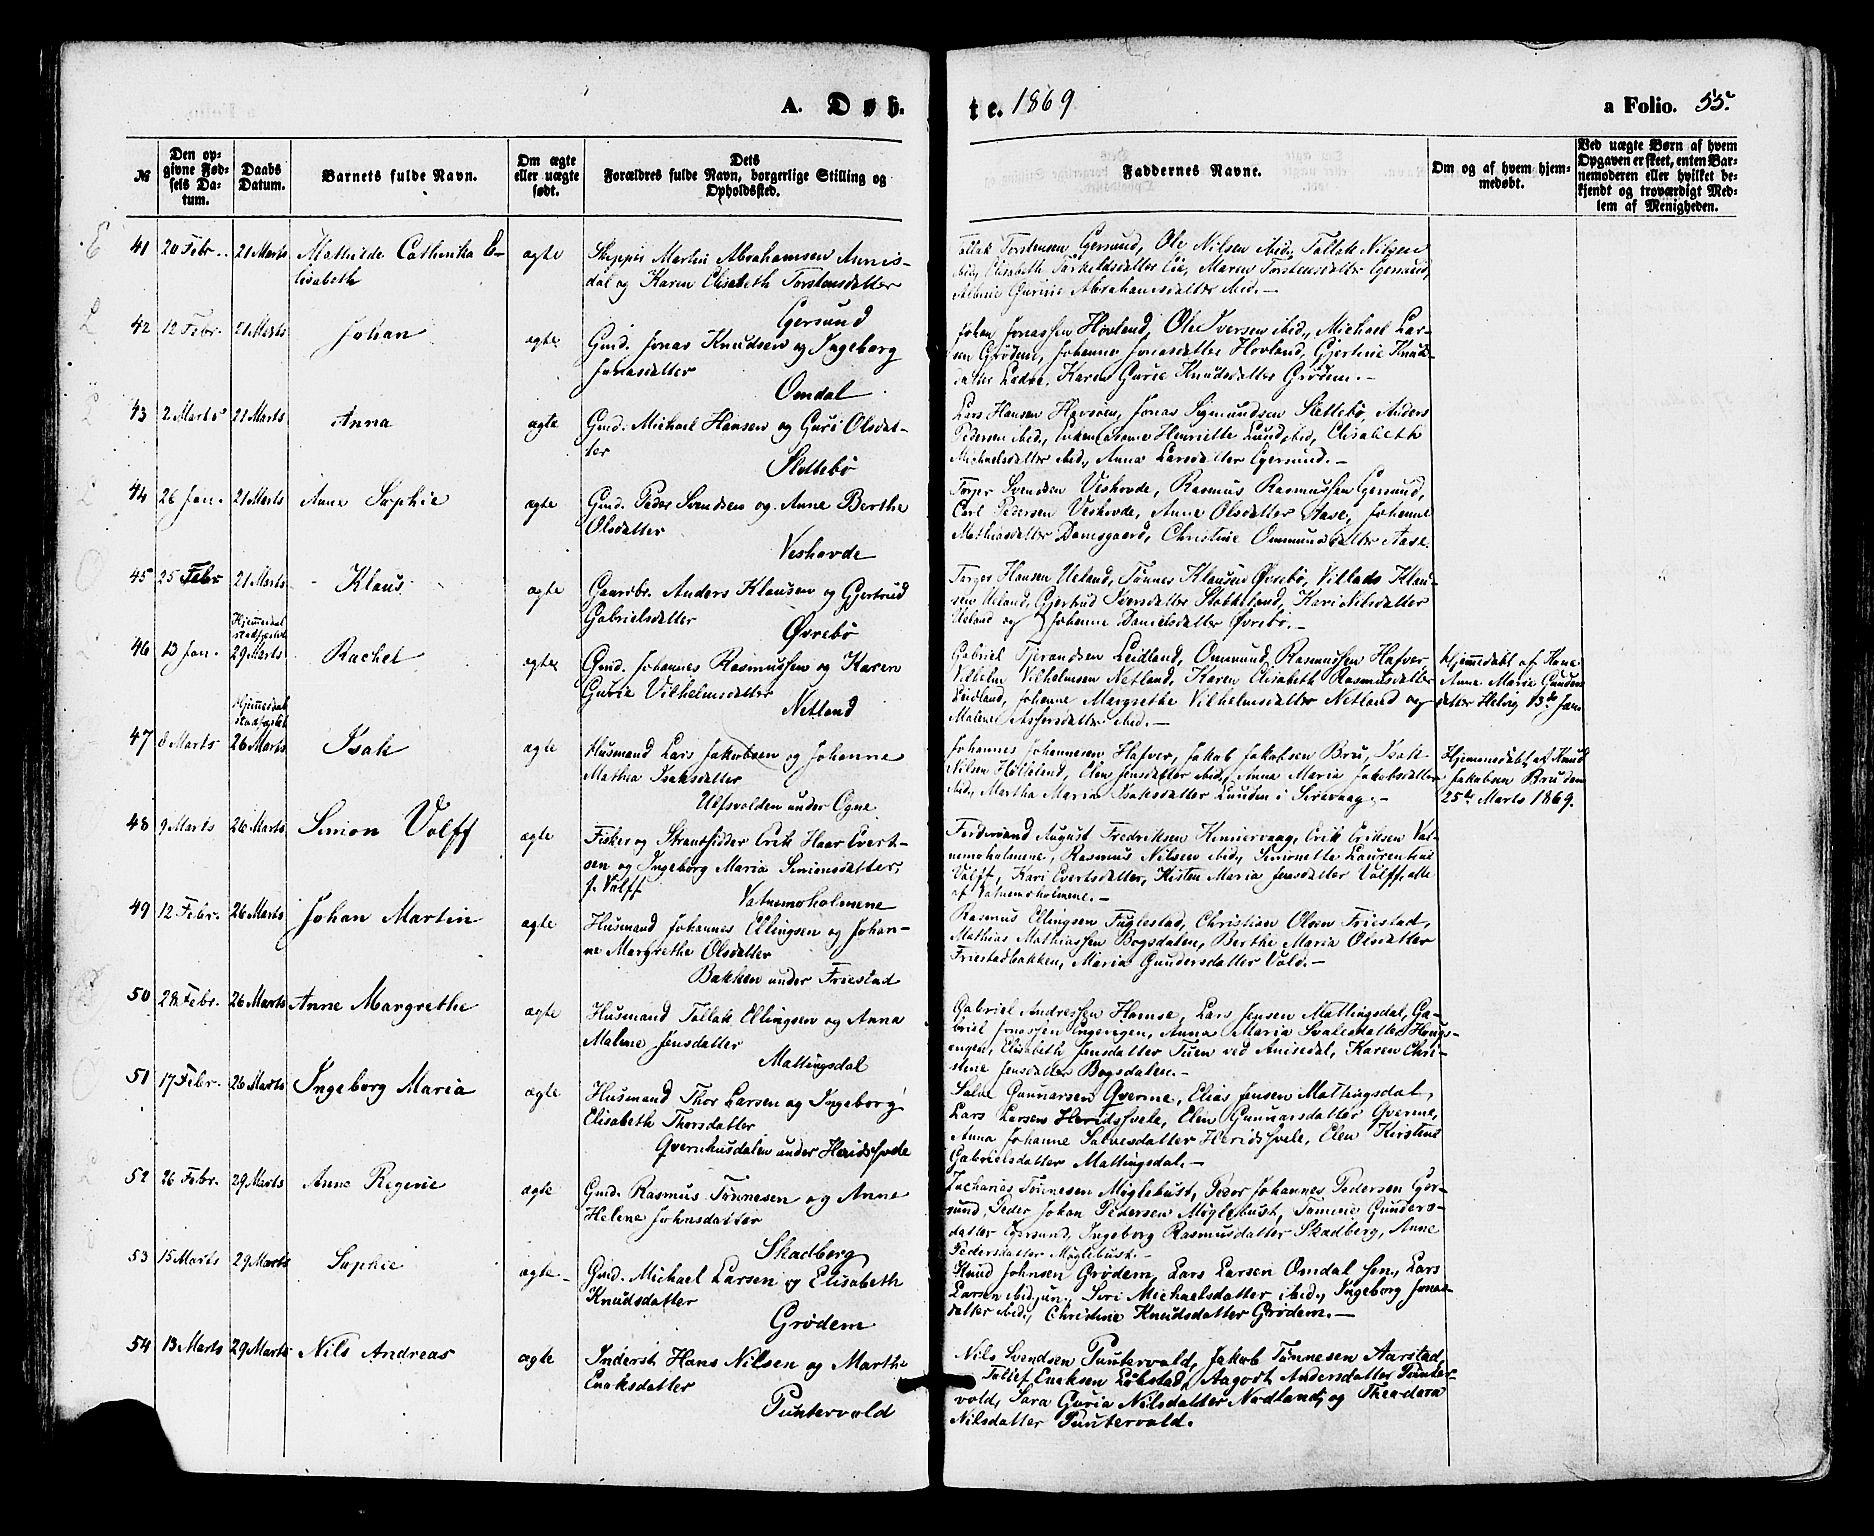 A. Døb-
te. 1869
a Folio. 55.
№
Den op-
givne Fød-
sels Da-
tum.
Daabs
Datum.
Barnets fulde Navn.
Om ægte
eller uægte
født.
Dets
Forældres fulde Navn, borgerlige Stilling og
Opholdssted.
Faddernes Navne.
Om og af hvem hjem-
medøbt.
Ved uægte Børn af hvem
Opgaven er skeet, enten Bar-
nemoderen eller hvilket be-
kjendt og troværdigt Med-
lem af Menigheden.
41 20 Febr. 21 Marts Mathilde Cathinka E-
lisabeth
ægte
Skipper Martin Abrahamsen Annis-
dal og Karen Elisabeth Torstensdatter
Egersund
Tollak Torstensen Egersund, Ole Nilsen ibid, Tollak Nilsen
ibid, Elisabeth Torkeldsdatter Eie, Maren Torstensdatter Egersund,
Gurine Abrahamsdatter ibid.-
42 12 Febr. 21 Marts Johan
ægte
Gmd. Jonas Knudsen og Ingeborg
Jonasdatter
Omdal
Johan Jonassen Hovland, Ole Iversen ibid, Michael Lar-
sen Grødem, Johanne Jonasdatter Hovland, Gjertine Knuds-
datter Ladve, Karen Gurie Knudsdatter Grødem.-
43 2 Marts 21 Marts Anna
ægte
Gmd. Michael Hansen og Guri Olsdat-
ter
Slettebø
Lars Hansen Havsøen, Jonas Sigmundsen Slettebø, Anders
Pedersen ibid, Henriette Lund ibid, Elisabeth
Michaelsdatter ibid, Anna Larsdatter Egersund.-
44 26 Jan. 21 Marts Anne Sophie
ægte
Gmd. Peder Svendsen og Anne Berthe
Olsdatter
Veshovde
Torger Svendsen Veshovde, Rasmus Rasmussen Egersund,
Carl Pedersen Veshovde, Anne Olsdatter Aase, Johanne
Mathiasdatter Damsgaard, Christine Ommundsdatter Aase.
45 25 Febr 21 Marts Klaus
ægte
Gaardbr. Anders Klausen og Gjertrud
Gabrielsdatter
Øvrebø
Torger Hansen Ueland, Tønnes Klausen Øvrebø, Villads Klau-
sen Ueland, Gjertrud Iversdatter Stokkeland, Kari Nilsdatter
Ueland og Johanne Danielsdatter Øvrebø.-
46 13 Jan.
Hjemmedåb
stadfæstet
29 Marts Rachel
ægte
Gmd. Johannes Rasmussen og Karen
Guria Vilhelmsdatter
Netland
Gabriel Tjerandsen Leidland, Ommund Rasmussen Hafver,
Vilhelm Vilhelmsen Netland, Karen Elisabeth Rasmusdatter
Leidland, Johanne Margrethe Vilhelmsdatter Netland og
Malene Asgersdatter ibid.-
Hjemmedøbt af Kone
Anna Maria Gunders
datter Helvig 13de Jan
47 8 Marts
Hjemmedåb
stadfæstet
26 Marts Isak
ægte
Husmand Lars Jakobsen og Johanne
Mathea Isaksdatter
Ulfsvolden under Ogne
Johannes Johannesen Hafver, Jakob Jakobsen Bru, Isak
Nilsen Hølleland, Elen Jensdatter ibid, Anna Maria Jakobsdatter
ibid, Martha Maria Isaksdatter Lunden i Sirevaag.-
Hjemmedøbt af Knud
Jakobsen Bru den
25de Marts 1869.
48 9 Marts 26 Marts Simon Volff
ægte
Fisker og Strandsidder Erik Haar Evert-
sen og Ingeborg Maria Simonsdatter,
f. Volff
Vatnemoholmene
Ferdinand August Fredriksen Kenniervaag, Erik Eriksen Vat-
nemoholmene, Rasmus Nilsen ibid, Simonette Laurentius
Volff, Kari Evertsdatter, Kisten Maria Jensdatter Volff, alle
af Vatnemoholmene.-
49 12 Febr. 26 Marts Johan Martin
ægte
Husmand Johannes Ellingsen og Johan-
ne Margrethe Olsdatter
Bakken under Friestad
Rasmus Ellingsen Fuglestad, Christian Olsen Friestad,
Mathias Mathiassen Bogsdalen, Berthe Maria Olsdatter
Friestadbakken, Maria Gundersdatter Vold.-
50 28 Febr. 26 Marts Anne Margrethe
ægte
Husmand Tollak Ellingsen og Anna
Malene Jensdatter
Mattingsdal
Gabriel Andressen Homse, Lars Jensen Mattingsdal, Ga-
briel Jonassen Engevigen, Anna Maria Salvesdatter Houg-
engen, Elisabeth Jensdatter Tuen ved Anisdal, Karen Chri-
stine Jensdatter Bogsdalen.-
51 17 Febr. 26 Marts Ingeborg Maria
ægte
Husmand Thor Larsen og Ingeborg
Elisabeth Thorsdatter
Qvernhusdalen under Heidsfvele
Salve Gunnarsen Qverme, Elias Jensen Mattingsdal,
Lars Larsen Heridsfvele, Elen Gunnarsdatter Qverme,
Anna Johanne Salvesdatter Heridsfvele, Elen Kirstine
Gabrielsdatter Mattingsdal.-
52 26 Febr. 29 Marts Anne Regine
ægte
Gmd. Rasmus Tønnesen og Anne
Helene Johnsdatter
Skadberg
Zacharias Tønnesen Møglebust, Peder Johannes Pedersen Eger-
sund, Peder Johan Pedersen Møglebust, Tomine Gunders-
datter Egersund, Ingeborg Rasmusdatter Skadberg, Anne
Pedersdatter Møglebust.-
53 15 Marts 29 Marts Sophie
ægte
Gmd. Michael Larsen og Elisabeth
Knudsdatter
Grødem
Knud Johnsen Grødem, Lars Larsen Omdal sen, Lars
Larsen ibid jun, Siri Michaelsdatter ibid, Ingeborg Jonas-
datter ibid, Christine Knudsdatter Grødem.-
54 13 Marts 29 Marts Nils Andreas
ægte
Inderst Hans Nilsen og Marthe
Enoksdatter
Puntervold
Nils Svendsen Puntervold, Jakob Tønnesen Aarstad,
Tollef Enoksen Løkstad, Aagodt Andersdatter Punter-
vold, Sara Guria Nilsdatter Nodland, og Theodora
Nilsdatter Puntervold.